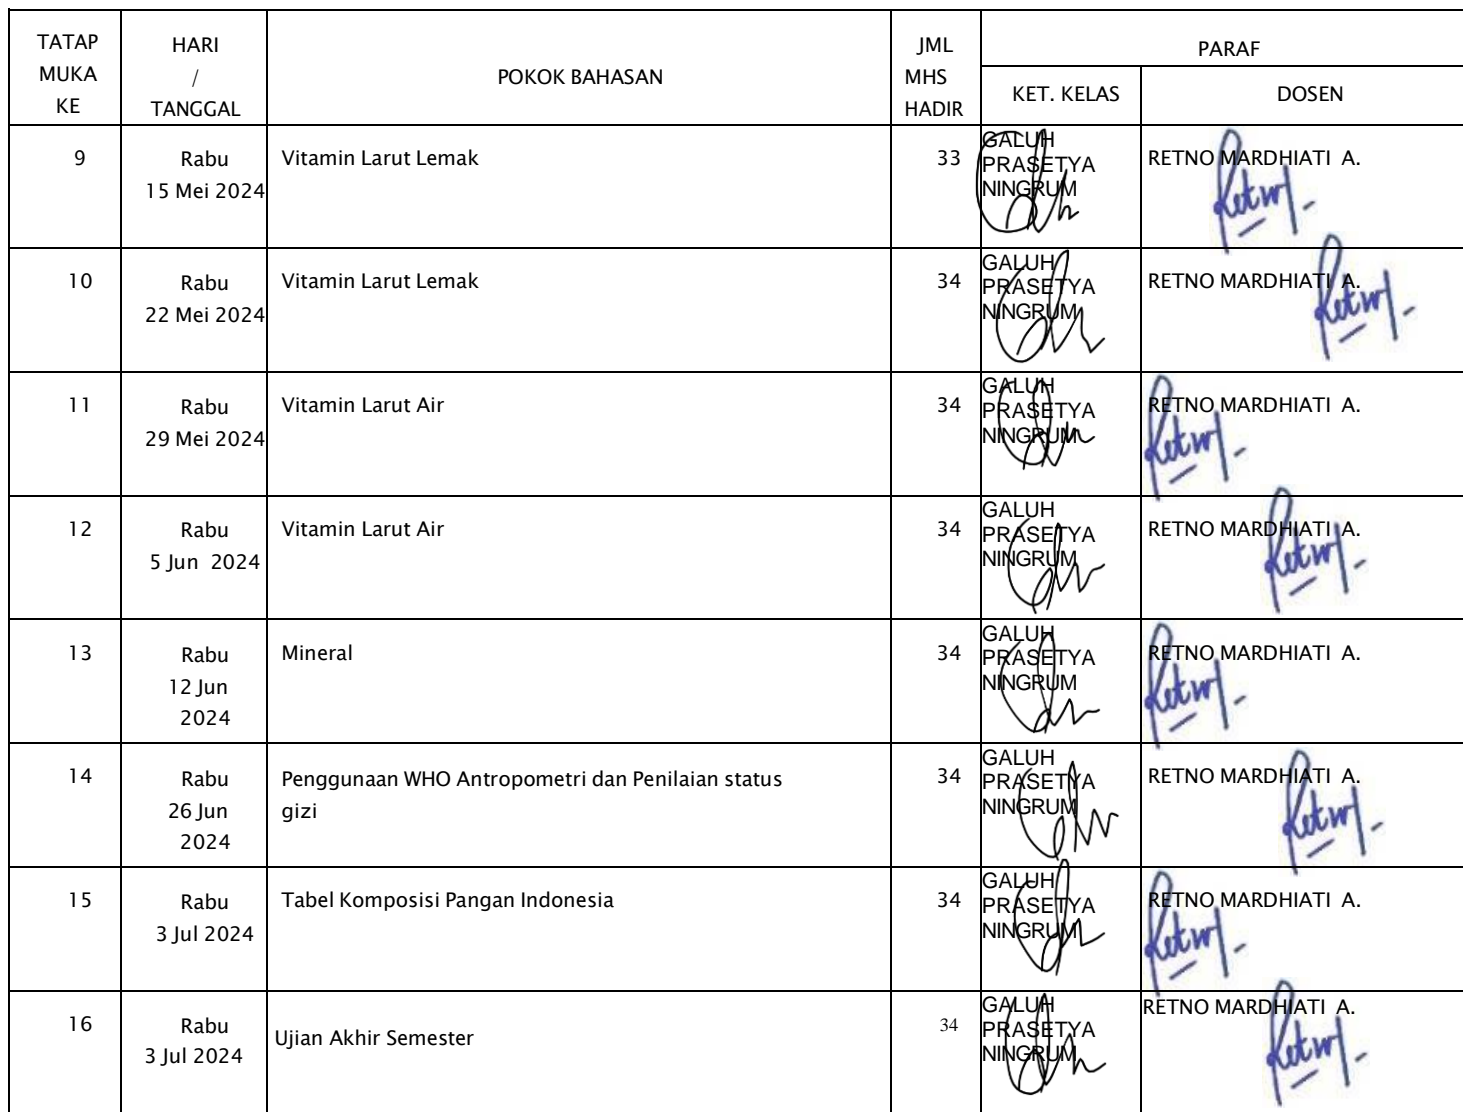 TATAP
MUKA
KE
HARI
/
TANGGAL
POKOK BAHASAN
JML
MHS
HADIR
PARAF
KET. KELAS
DOSEN
9
Rabu
15 Mei 2024
Vitamin Larut Lemak
33
GALUH
PRASETYA
NINGRUM
RETNO MARDHIATI A.
10
Rabu
22 Mei 2024
Vitamin Larut Lemak
34
GALUH
PRASETYA
NINGRUM
RETNO MARDHIATI A.
11
Rabu
29 Mei 2024
Vitamin Larut Air
34
GALUH
PRASETYA
NINGRUM
RETNO MARDHIATI A.
12
Rabu
5 Jun 2024
Vitamin Larut Air
34
GALUH
PRASETYA
NINGRUM
RETNO MARDHIATI A.
13
Rabu
12 Jun
2024
Mineral
34
GALUH
PRASETYA
NINGRUM
RETNO MARDHIATI A.
14
Rabu
26 Jun
2024
Penggunaan WHO Antropometri dan Penilaian status
gizi
34
GALUH
PRASETYA
NINGRUM
RETNO MARDHIATI A.
15
Rabu
3 Jul 2024
Tabel Komposisi Pangan Indonesia
34
GALUH
PRASETYA
NINGRUM
RETNO MARDHIATI A.
16
Rabu
3 Jul 2024
Ujian Akhir Semester
34
GALUH
PRASETYA
NINGRUM
RETNO MARDHIATI A.